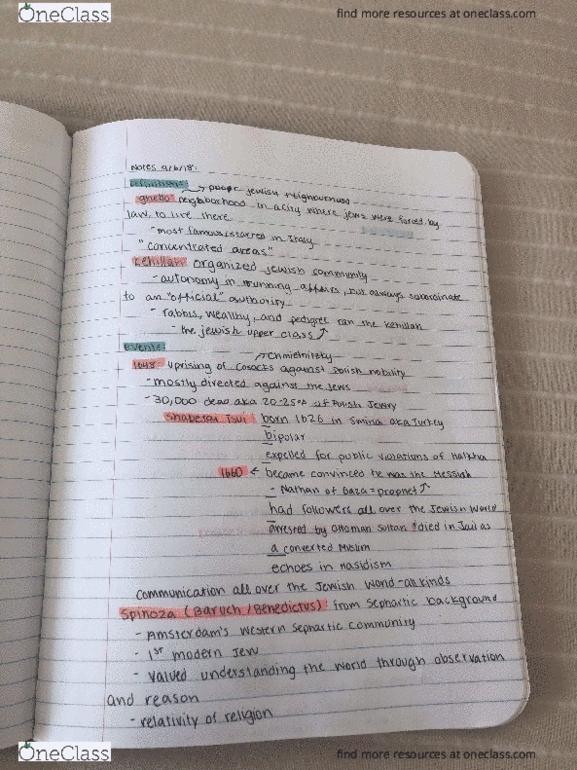 OneClass
find more resources at oneclass.com
Notes 9/6/18:
Definitions:
jewish
ghetto neighborhood in a city where jews were forced by
law to live there
- most famous/started in Italy
"concentrated areas"
kehillah organized jewish community
- autonomy in running affairs, but always subordinate
to an "official" authority
- rabbis, wealthy, and pedigree ran the kehillah
- the jewish upper class
events:
Chmielnitsky
1648- uprising of Cossacks against Polish nobility
- mostly directed against the Jews
- 30,000 dead aka 20-25% of Polish Jewry
Shabetai Tsvi born 1626 in Smirna aka Turkey
bipolar
expelled for public violations of Halakha
1660 ← became convinced he was the Messiah
- Nathan of Gaza = prophet
had followers all over the Jewish World
arrested by Ottoman Sultan & died in jail as
a converted Muslim
echoes in Hasidism
Communication all over the Jewish World - all kinds
Spinoza (Baruch/Benedictus) from Sephartic background
- Amsterdam's Western Sephartic Community
- 1st modern Jew
- valued understanding the world through observation
and reason
- relativity of religion
OneClass
find more resources at oneclass.com